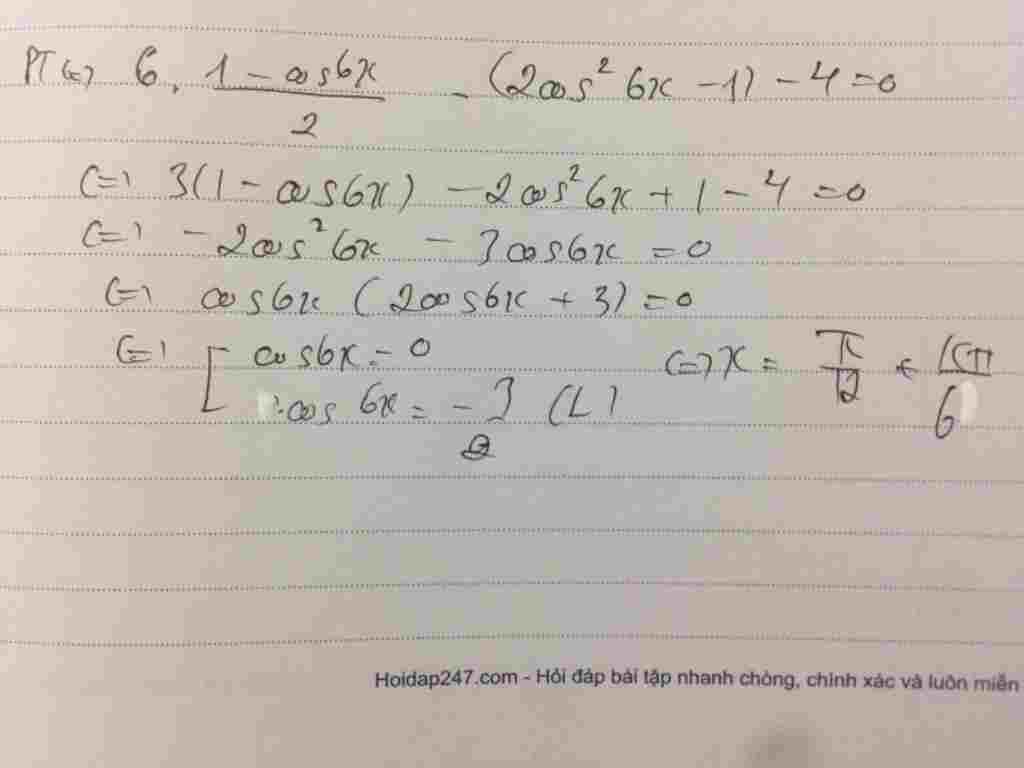 PT <=> 6. (1 - cos6x)/2 - (2cos²6x - 1) - 4 = 0
<=> 3(1 - cos6x) - 2cos²6x + 1 - 4 = 0
<=> -2cos²6x - 3cos6x = 0
<=> cos6x (2cos6x + 3) = 0
<=> [ cos6x = 0 <=> x = π/12 + kπ/6
cos 6x = -3/2 (L)
Hoidap247.com - Hỏi đáp bài tập nhanh chóng, chính xác và luôn miễn